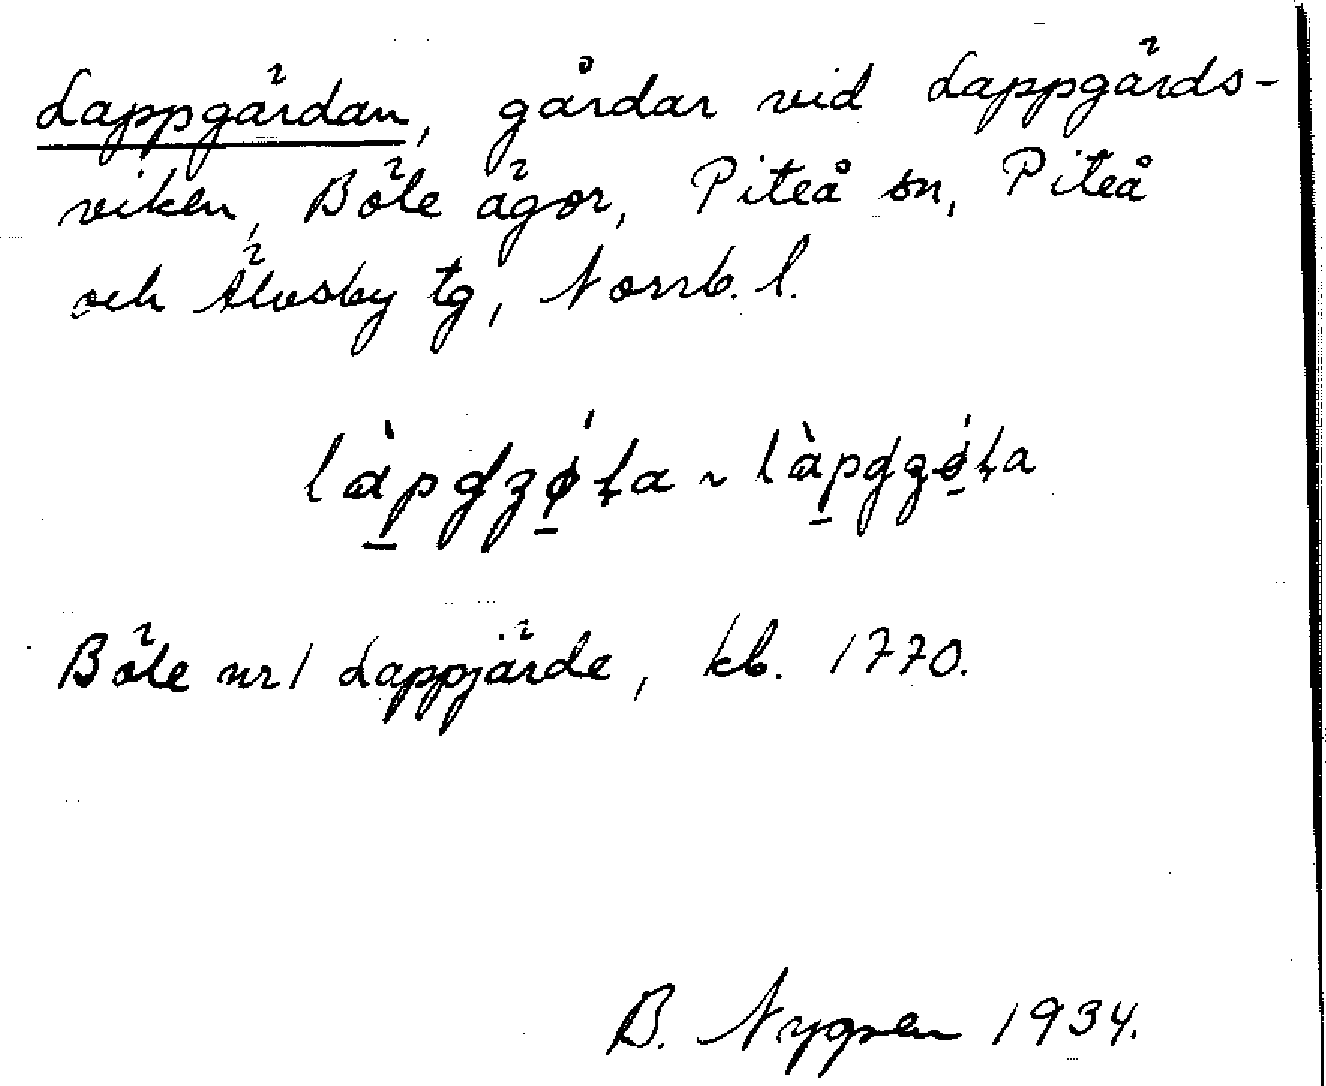 Lappgärdan, gårdar vid Lappgärds-
viken, Böle ägor, Piteå sn, Piteå
och Älvsby tg, Norrb. l.
Böle nr 1 Lappjärde, kb. 1770.
B. Nygren 1934.